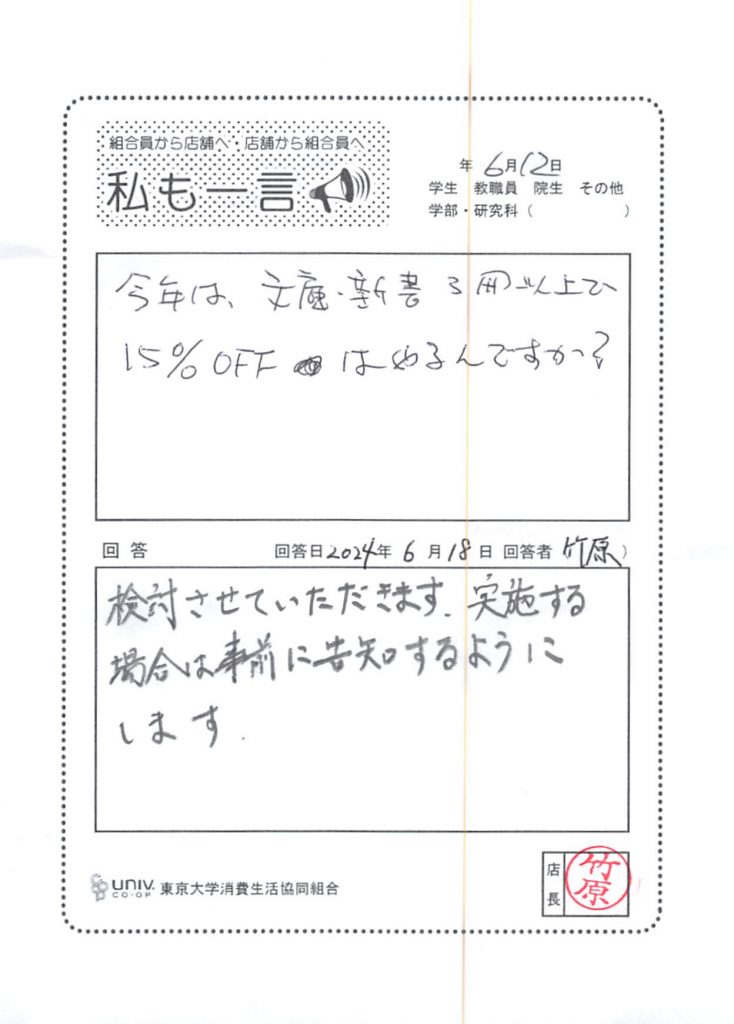 組合員から店舗へ・店舗から組合員へ
私も一言
年 6月12日
学生 教職員 院生 その他
学部・研究科( )
今年は、文庫・新書 3冊以上で
15% OFF はやるんですか?
回答 回答日2024年 6月18日 回答者 竹原)
検討させていただきます。実施する
場合は事前に告知するように
します。
店長 竹原
UNIV. CO-OP 東京大学消費生活協同組合